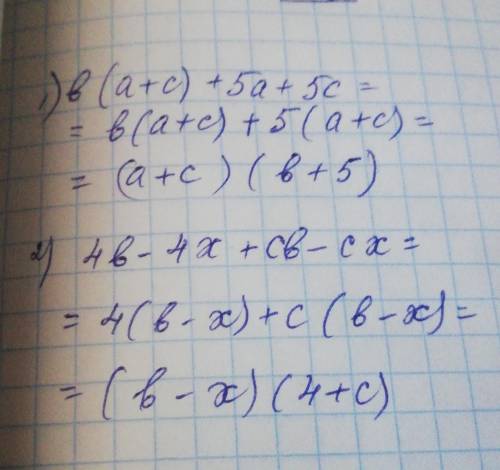 1) в(a+c)+5a+5c=
= в(a+c)+5(a+c)=
= (a+c)(в+5)
2) 4в-4x+cв-cx=
= 4(в-x)+c(в-x)=
= (в-x)(4+c)